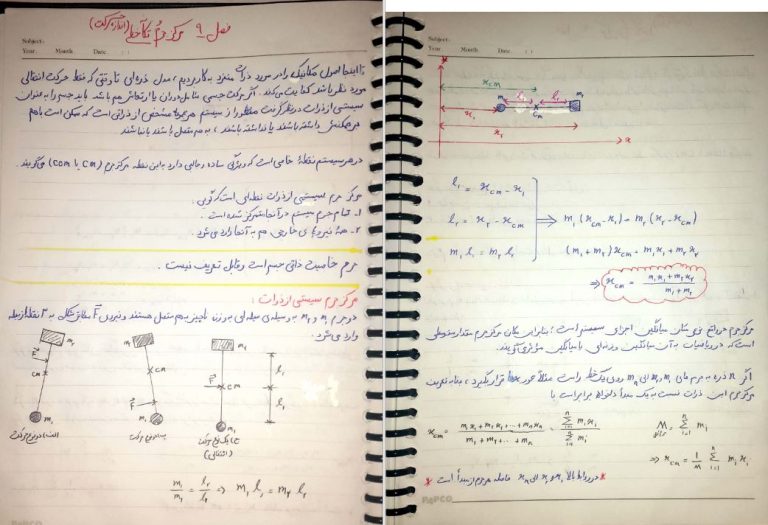 فصل ۹ مرکز جرم و تکانه خطی (اندازه حرکت)
Subject:
Year. Month Date. ( )
تا اینجا اصول مکانیک را در مورد ذرات منفرد به کار بردیم، مدل ذره‌ای تا وقتی که فقط حرکت انتقالی
مورد نظر باشد کفایت می‌کند. اگر حرکت جسمی شامل دوران یا ارتعاش هم باشد باید جسم را به عنوان
سیستمی از ذرات در نظر گرفت منظور از سیستم هر مجموعه مشخص از ذراتی است که ممکن است با هم
برهمکنش داشته باشند یا نداشته باشند، به هم متصل باشند یا نباشند
در هر سیستم نقطهٔ خاصی است که ویژگی ساده و جالبی دارد به این نقطه مرکز جرم (cm یا com) می‌گویند.
مرکز جرم سیستمی از ذرات نقطه‌ای است که گویی:
۱- تمام جرم سیستم در آنجا متمرکز شده است.
۲- همهٔ نیروهای خارجی هم به آنجا وارد می‌شود.
جرم خاصیت ذاتی جسم است و قابل تعریف نیست.
مرکز جرم سیستمی از ذرات:
دو جرم m₁ و m₂ به وسیله‌ی میله‌ای به وزن ناچیز به هم متصل هستند و نیروی F مطابق شکل به ۳ نقطه از میله
وارد می‌شود.
m₂
F
cm
m₁
m₂
cm
F
m₁
m₂
F
cm
l₂
l₁
m₁
(انتقالی)
m₁/m₂ = l₂/l₁ ⇒ m₁ l₁ = m₂ l₂
PAPCO
Subject:
Year. Month Date. ( )
x_cm
l₁ l₂
m₁ m₂
x₁ cm
x₂
x
l₁ = x_cm − x₁
l₂ = x₂ − x_cm ⇒ m₁ (x_cm − x₁) = m₂ (x₂ − x_cm)
m₁ l₁ = m₂ l₂ (m₁ + m₂) x_cm = m₁x₁ + m₂x₂
⇒ x_cm = (m₁x₁ + m₂x₂)/(m₁ + m₂)
مرکز جرم در واقع نوعی مکان میانگین اجزای سیستم است؛ بنابراین مکان مرکز جرم مقدار متوسطی
است که در ریاضیات به آن میانگین وزنه‌ای یا میانگین مؤثر می‌گویند.
اگر n ذره به جرم‌های m₁ و m₂ الی mₙ روی یک خط راست مثلاً محور x قرار بگیرد، بنا به تعریف
مرکز جرم این ذرات نسبت به یک مبدأ دلخواه برابر است با
x_cm = (m₁x₁ + m₂x₂ + ... + mₙxₙ)/(m₁ + m₂ + ... + mₙ) = (Σᵢ₌₁ⁿ mᵢxᵢ)/(Σᵢ₌₁ⁿ mᵢ) M = Σᵢ₌₁ⁿ mᵢ
⇒ x_cm = 1/M Σᵢ₌₁ⁿ mᵢ xᵢ
* در روابط بالا x₁ و x₂ الی xₙ فاصله هر جرم از مبدأ است *
PAPCO